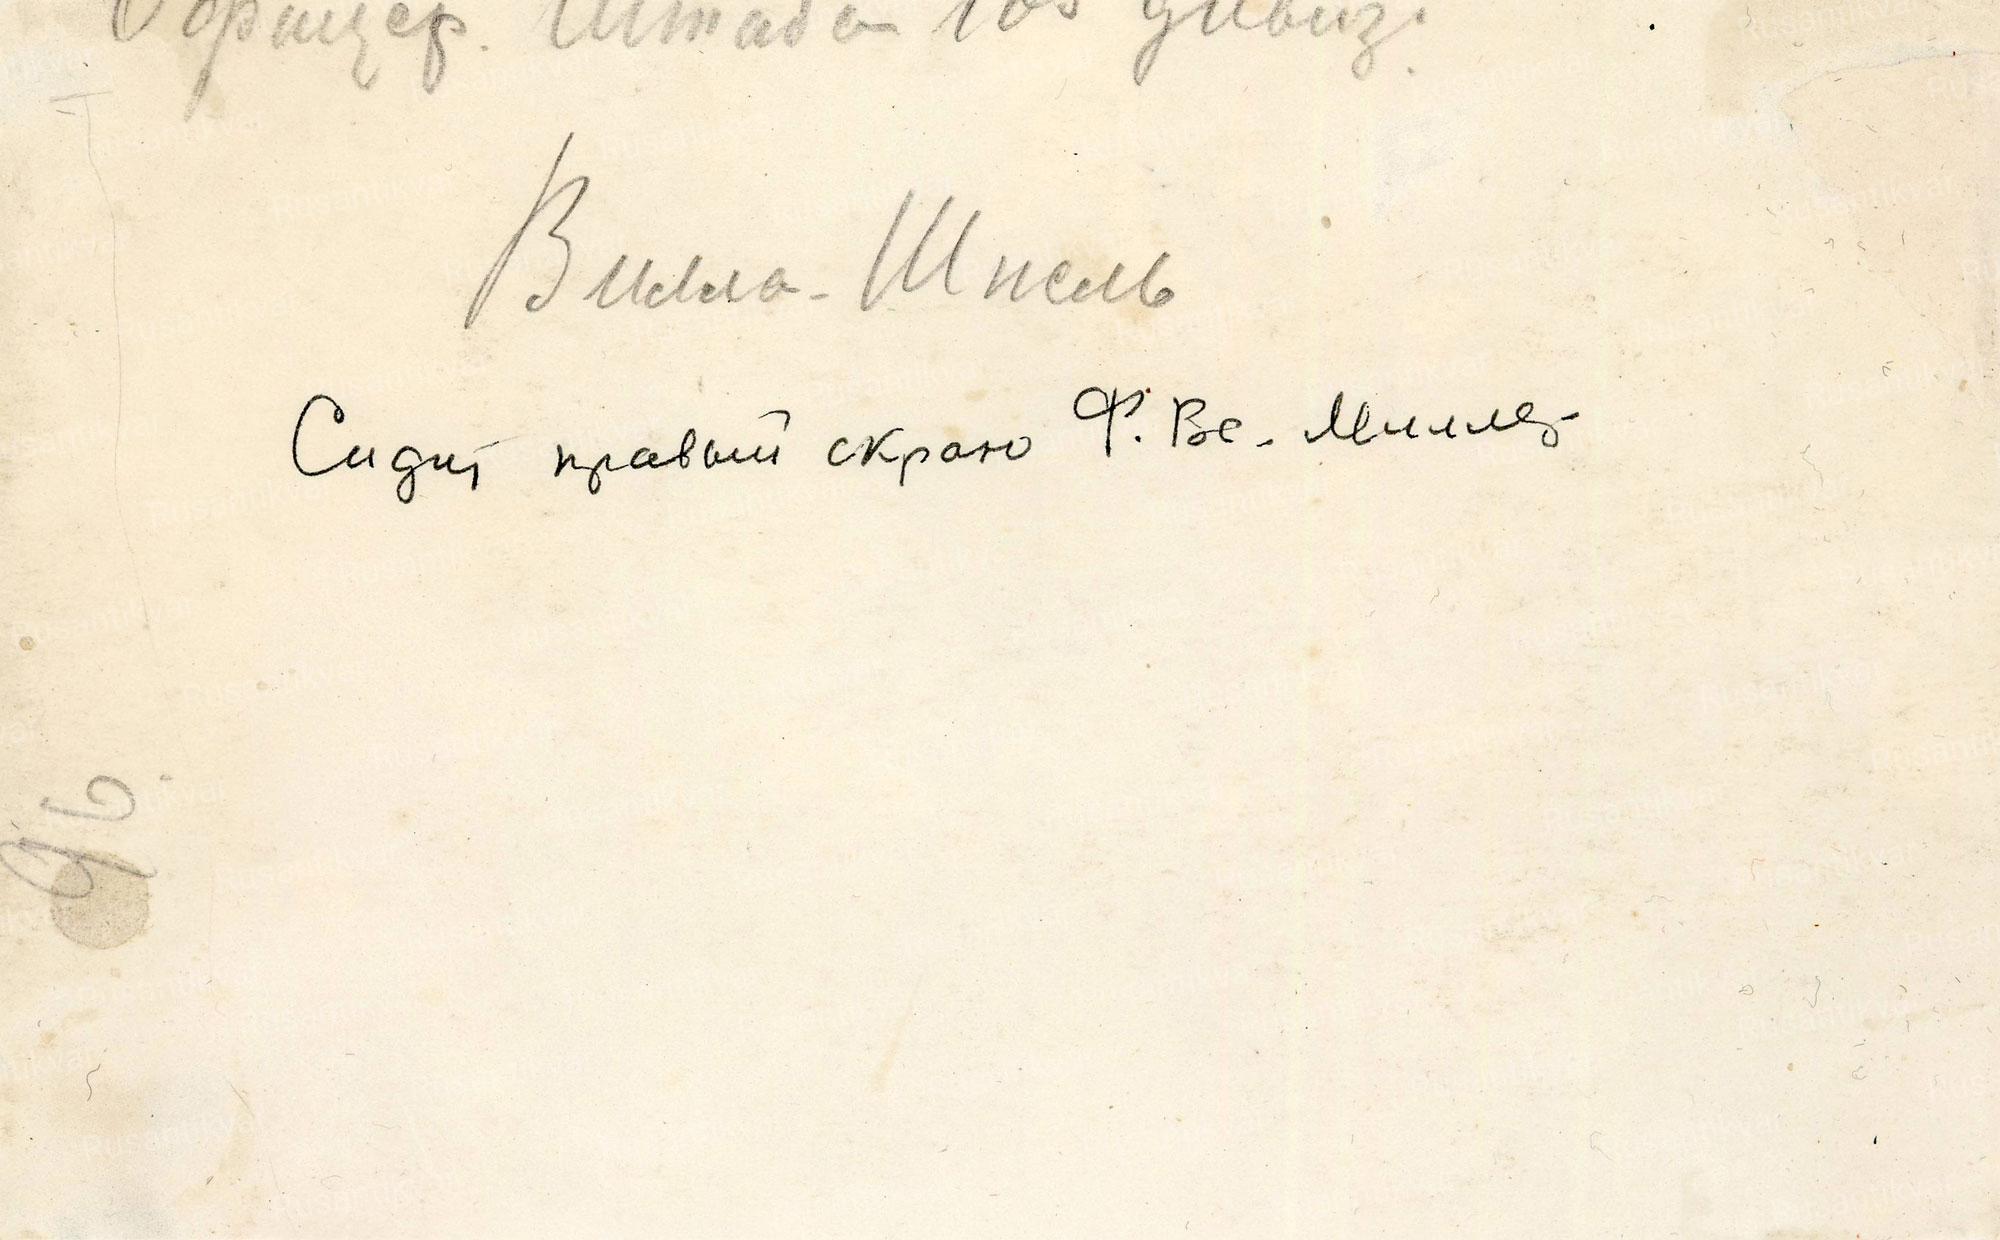 Офицер. Штаба 105 дивиз.
Вилла-Шпель
Сидит правый скраю Ф. Ве. Миллер
96.